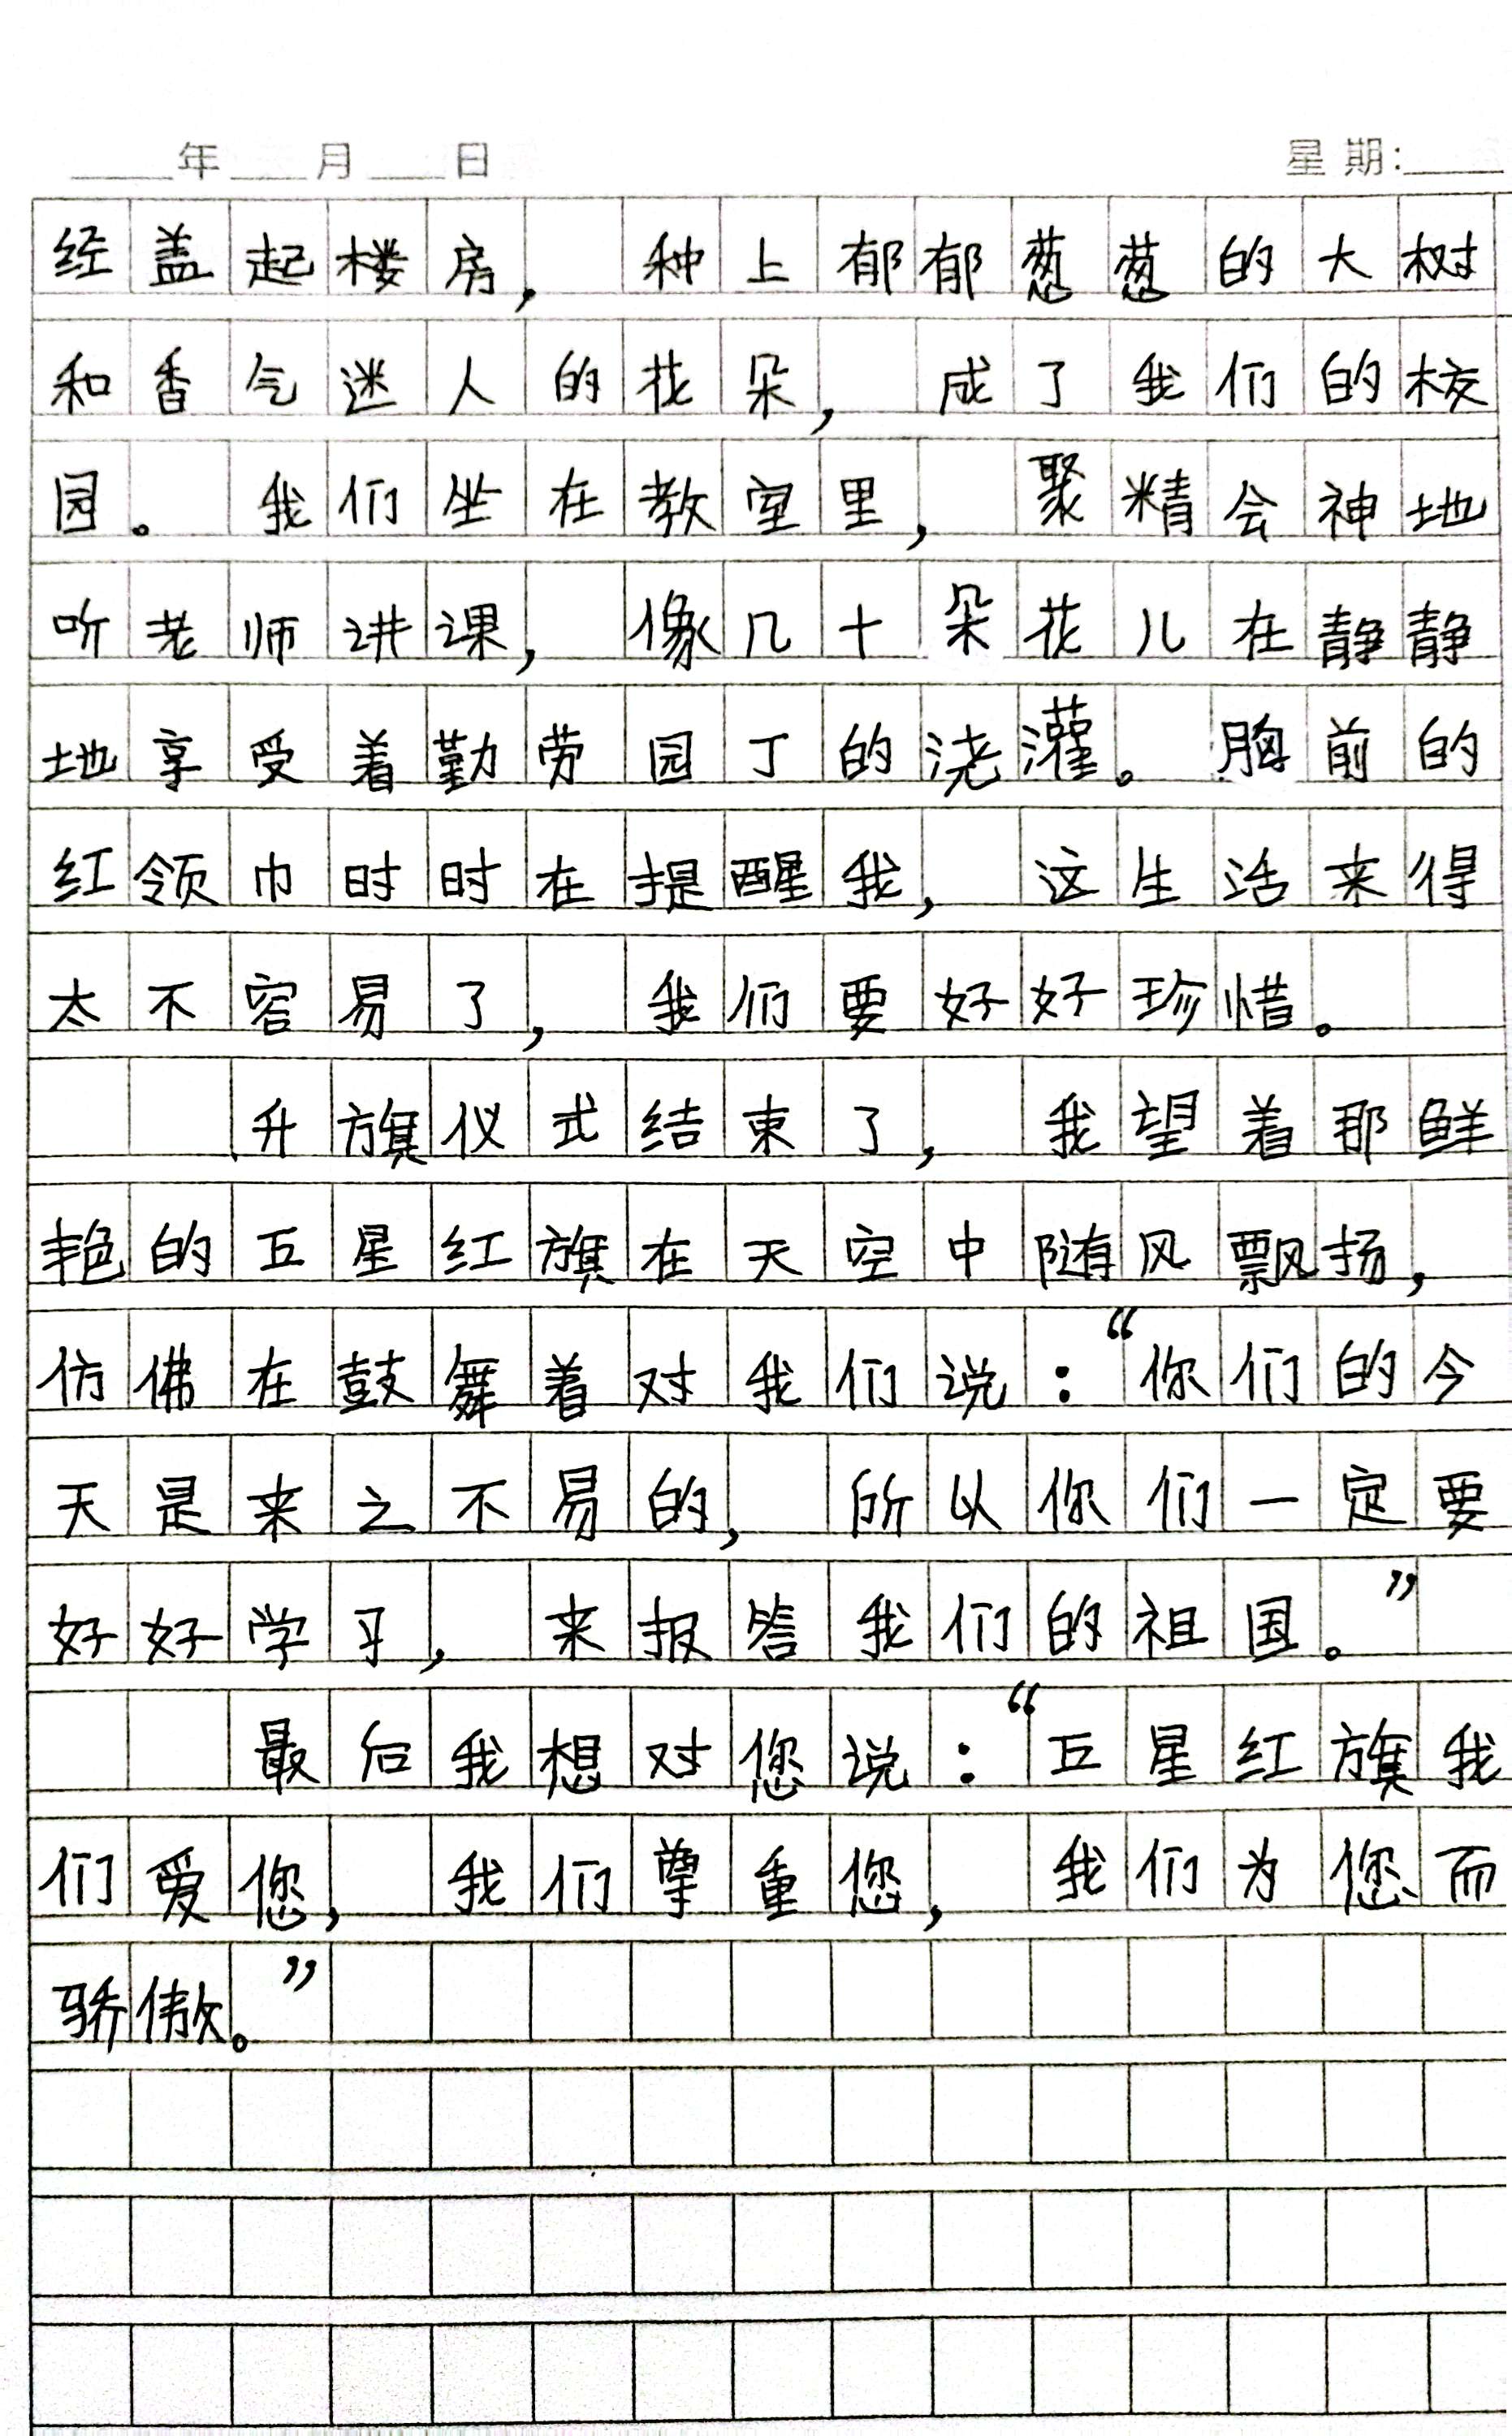 ____年____月____日 星期:____
经盖起楼房，种上郁郁葱葱的大树
和香气迷人的花朵，成了我们的校
园。我们坐在教室里，聚精会神地
听老师讲课，像几十朵花儿在静静
地享受着勤劳园丁的浇灌。胸前的
红领巾时时在提醒我，这生活来得
太不容易了，我们要好好珍惜。
升旗仪式结束了，我望着那鲜
艳的五星红旗在天空中随风飘扬，
仿佛在鼓舞着对我们说：“你们的今
天是来之不易的，所以你们一定要
好好学习，来报答我们的祖国。”
最后我想对您说：“五星红旗我
们爱您，我们尊重您，我们为您而
骄傲。”